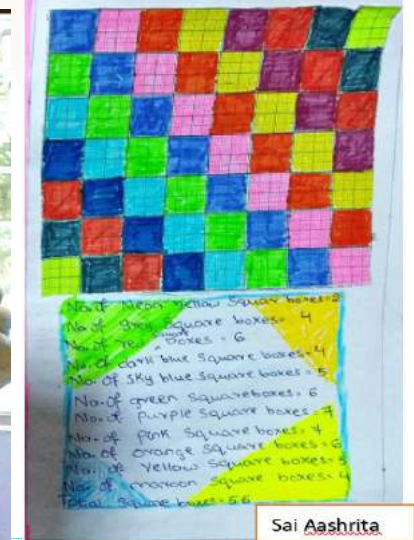 No. of Neon Yellow Square boxes = 2
No. of grey square boxes = 4
No. of red square boxes = 6
No. of dark blue square boxes = 4
No. of sky blue square boxes = 5
No. of green square boxes = 6
No. of purple square boxes = 7
No. of pink Square boxes = 7
No. of orange square boxes = 6
No. of Yellow square boxes = 5
No. of maroon square boxes = 4
Total square boxes = 56
Sai Aashrita